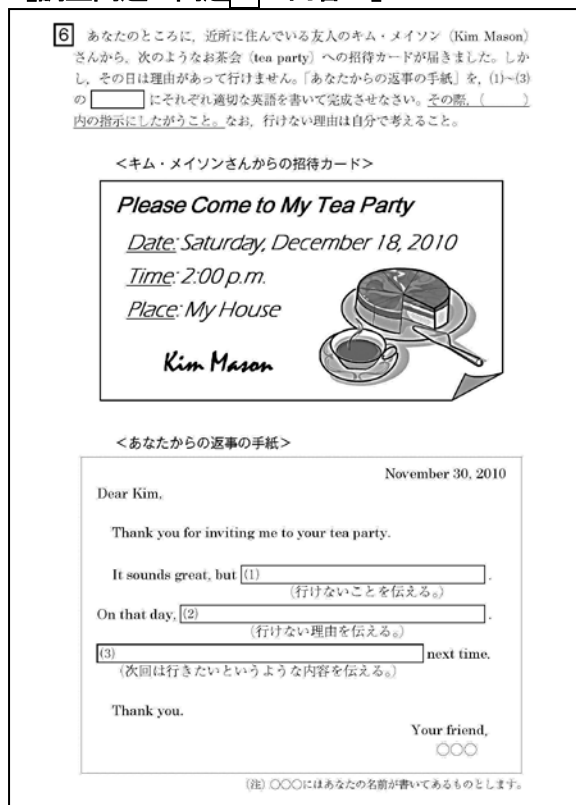 6 あなたのところに，近所に住んでいる友人のキム・メイソン（Kim Mason）
さんから，次のようなお茶会（tea party）への招待カードが届きました。しか
し，その日は理由があって行けません。「あなたからの返事の手紙」を，(1)~(3)
の　　　にそれぞれ適切な英語を書いて完成させなさい。その際，（　　　）
内の指示にしたがうこと。なお，行けない理由は自分で考えること。
＜キム・メイソンさんからの招待カード＞
Please Come to My Tea Party
Date: Saturday, December 18, 2010
Time: 2:00 p.m.
Place: My House
Kim Mason
＜あなたからの返事の手紙＞
November 30, 2010
Dear Kim,
Thank you for inviting me to your tea party.
It sounds great, but (1) .
（行けないことを伝える。）
On that day, (2) .
（行けない理由を伝える。）
(3) next time.
（次回は行きたいというような内容を伝える。）
Thank you.
Your friend,
○○○
（注）○○○にはあなたの名前が書いてあるものとします。